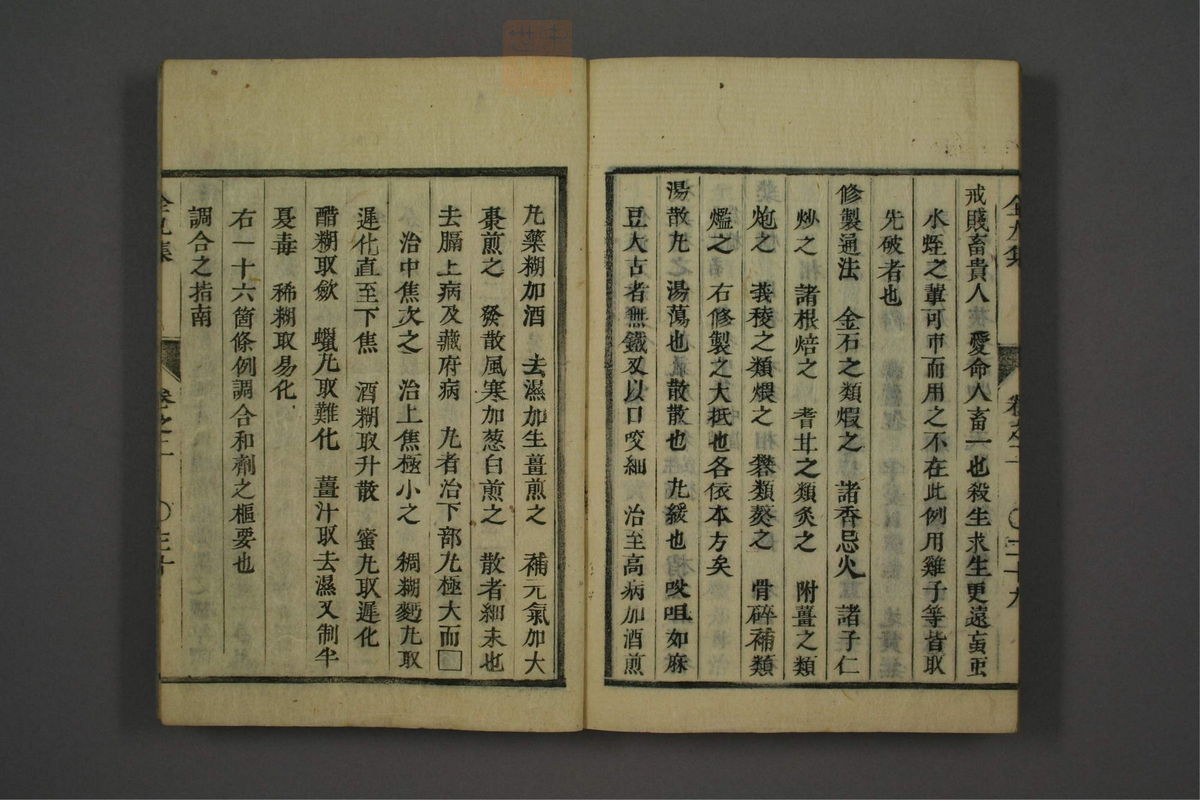 戒賤畜貴人　愛命人畜一也殺生求生更遠䖟虫
水蛭之軰可市而用之不在此例用雞子等皆取
先破者也
修製通法　金石之類煆之　諸香忌火　諸子仁
炒之　諸根焙之　耆甘之類灸之　附薑之類
炮之　莪稜之類煨之　礬類熬之　骨碎補類
爁之　右修製之大抵也各依本方矣
湯散九　湯蕩也散散也　九緩也　㕮咀如麻
豆大古者無鐵刄以口咬細　治至高病加酒煎
卷之二　〇二十九
九藥糊加酒　去濕加生薑煎之　補元氣加大
棗煎之　發散風寒加葱白煎之　散者細末也
去膈上病及藏府病　九者治下部九極大而□
治中焦次之　治上焦極小之　稠糊麪九取
遲化直至下焦　酒糊取升散　蜜九取遲化
醋糊取歛　蠟九取難化　薑汁取去濕又制半
夏毒　稀糊取易化
右一十六箇條例調合和劑之樞要也
調合之指南
卷之二　〇三十